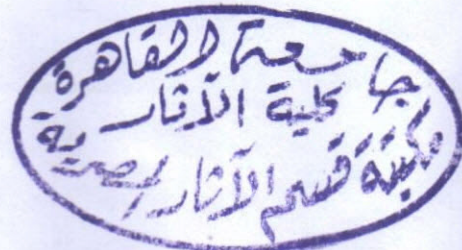 جامعة القاهرة
كلية الآثار
مكتبة قسم الآثار المصرية